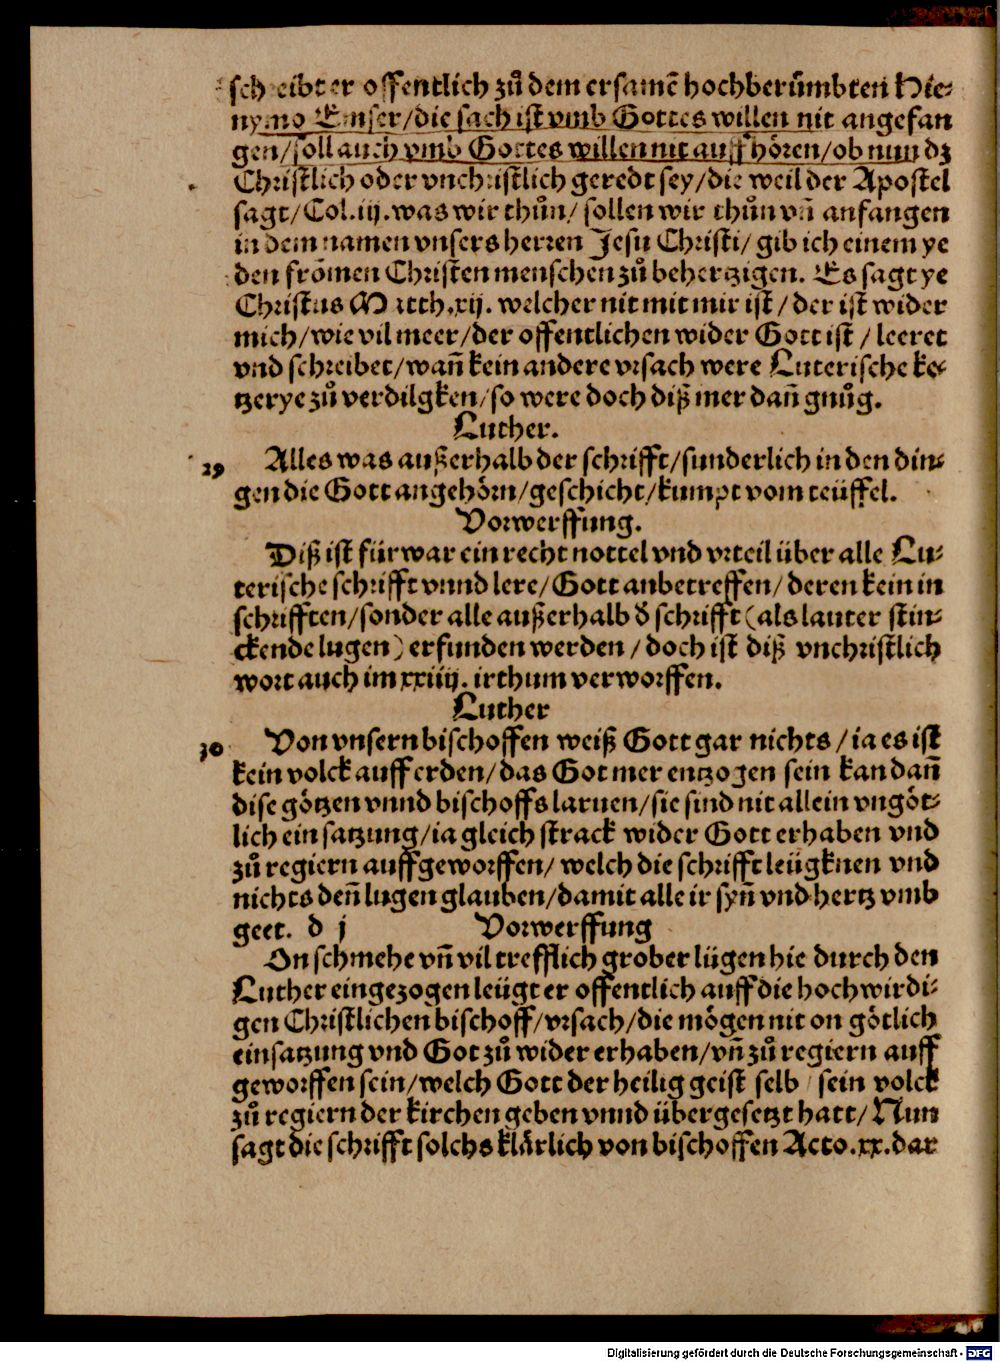 schreibt er offentlich zů dem ersamē hochberůmbten Hie-
nymo Emser/die sach ist vmb Gottes willen nit angefan
gen/soll auch vmb Gottes willen nit auffhören/ob nun dz
Christlich oder vnchristlich geredt sey/die weil der Apostel
sagt/Col.iij.was wir thůn/ sollen wir thůn vn̄ anfangen
in dem namen vnsers herren Jesu Christi/ gib ich einem ye
den frömen Christen menschen zů behertzigen. Es sagt ye
Christus Matth.xij. welcher nit mit mir ist / der ist wider
mich/wie vil meer/der offentlichen wider Gott ist / leeret
vnd schreibet/wan̄ kein andere vrsach were Luterische ke-
tzerye zů verdilgken/so were doch diß mer dan̄ gnůg.
Luther.
29 Alles was außerhalb der schrifft/sunderlich in den din-
gen die Gott angehörn/geschicht/kumpt vom teüffel.
Vorwerffung.
Diß ist fürwar ein recht nottel vnd vrteil über alle Lu-
terische schrifft vnnd lere/Gott anbetreffen/deren kein in
schrifften/sonder alle außerhalb d̄ schrifft (als lauter stin-
ckende lugen) erfunden werden / doch ist diß vnchristlich
wort auch im xxiiij. irthum verworffen.
Luther
30 Von vnsern bischoffen weiß Gott gar nichts / ia es ist
kein volck auff erden/das Got mer entzogen sein kan dan̄
dise götzen vnnd bischoffs laruen/sie sind nit allein vngöt-
lich ein satzung/ia gleich strack wider Gott erhaben vnd
zů regiern auffgeworffen/ welch die schrifft leügknen vnd
nichts den̄ lugen glauben/damit alle ir syn̄ vnd hertz vmb
geet. d j Vorwerffung
On schmehe vn̄ vil trefflich grober lügen hie durch den
Luther eingezogen leügt er offentlich auff die hochwirdi-
gen Christlichen bischoff/vrsach/die mögen nit on götlich
einsatzung vnd Got zů wider erhaben/vn̄ zů regiern auff
geworffen sein/welch Gott der heilig geist selb sein volck
zů regiern der kirchen geben vnnd übergesetzt hatt/ Nun
sagt die schrifft solchs klärlich von bischoffen Acto.xx.dar
Digitalisierung gefördert durch die Deutsche Forschungsgemeinschaft - DFG